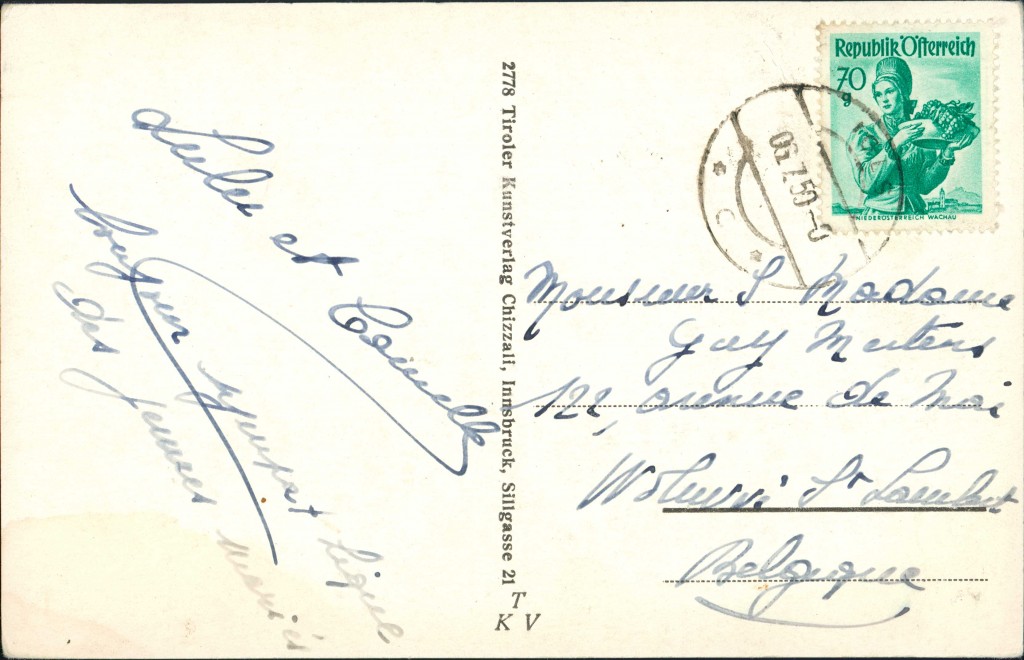 Lulu et
Camille
Bonjour sympathique
des jeunes mariés
2778 Tiroler Kunstverlag Chizzali, Innsbruck, Sillgasse 21
T
K V
Republik Österreich
70
g
NIEDERÖSTERREICH WACHAU
05.7.50
Monsieur & Madame
Guy Mertens
122, avenue de Mai
St Lambert
Belgique